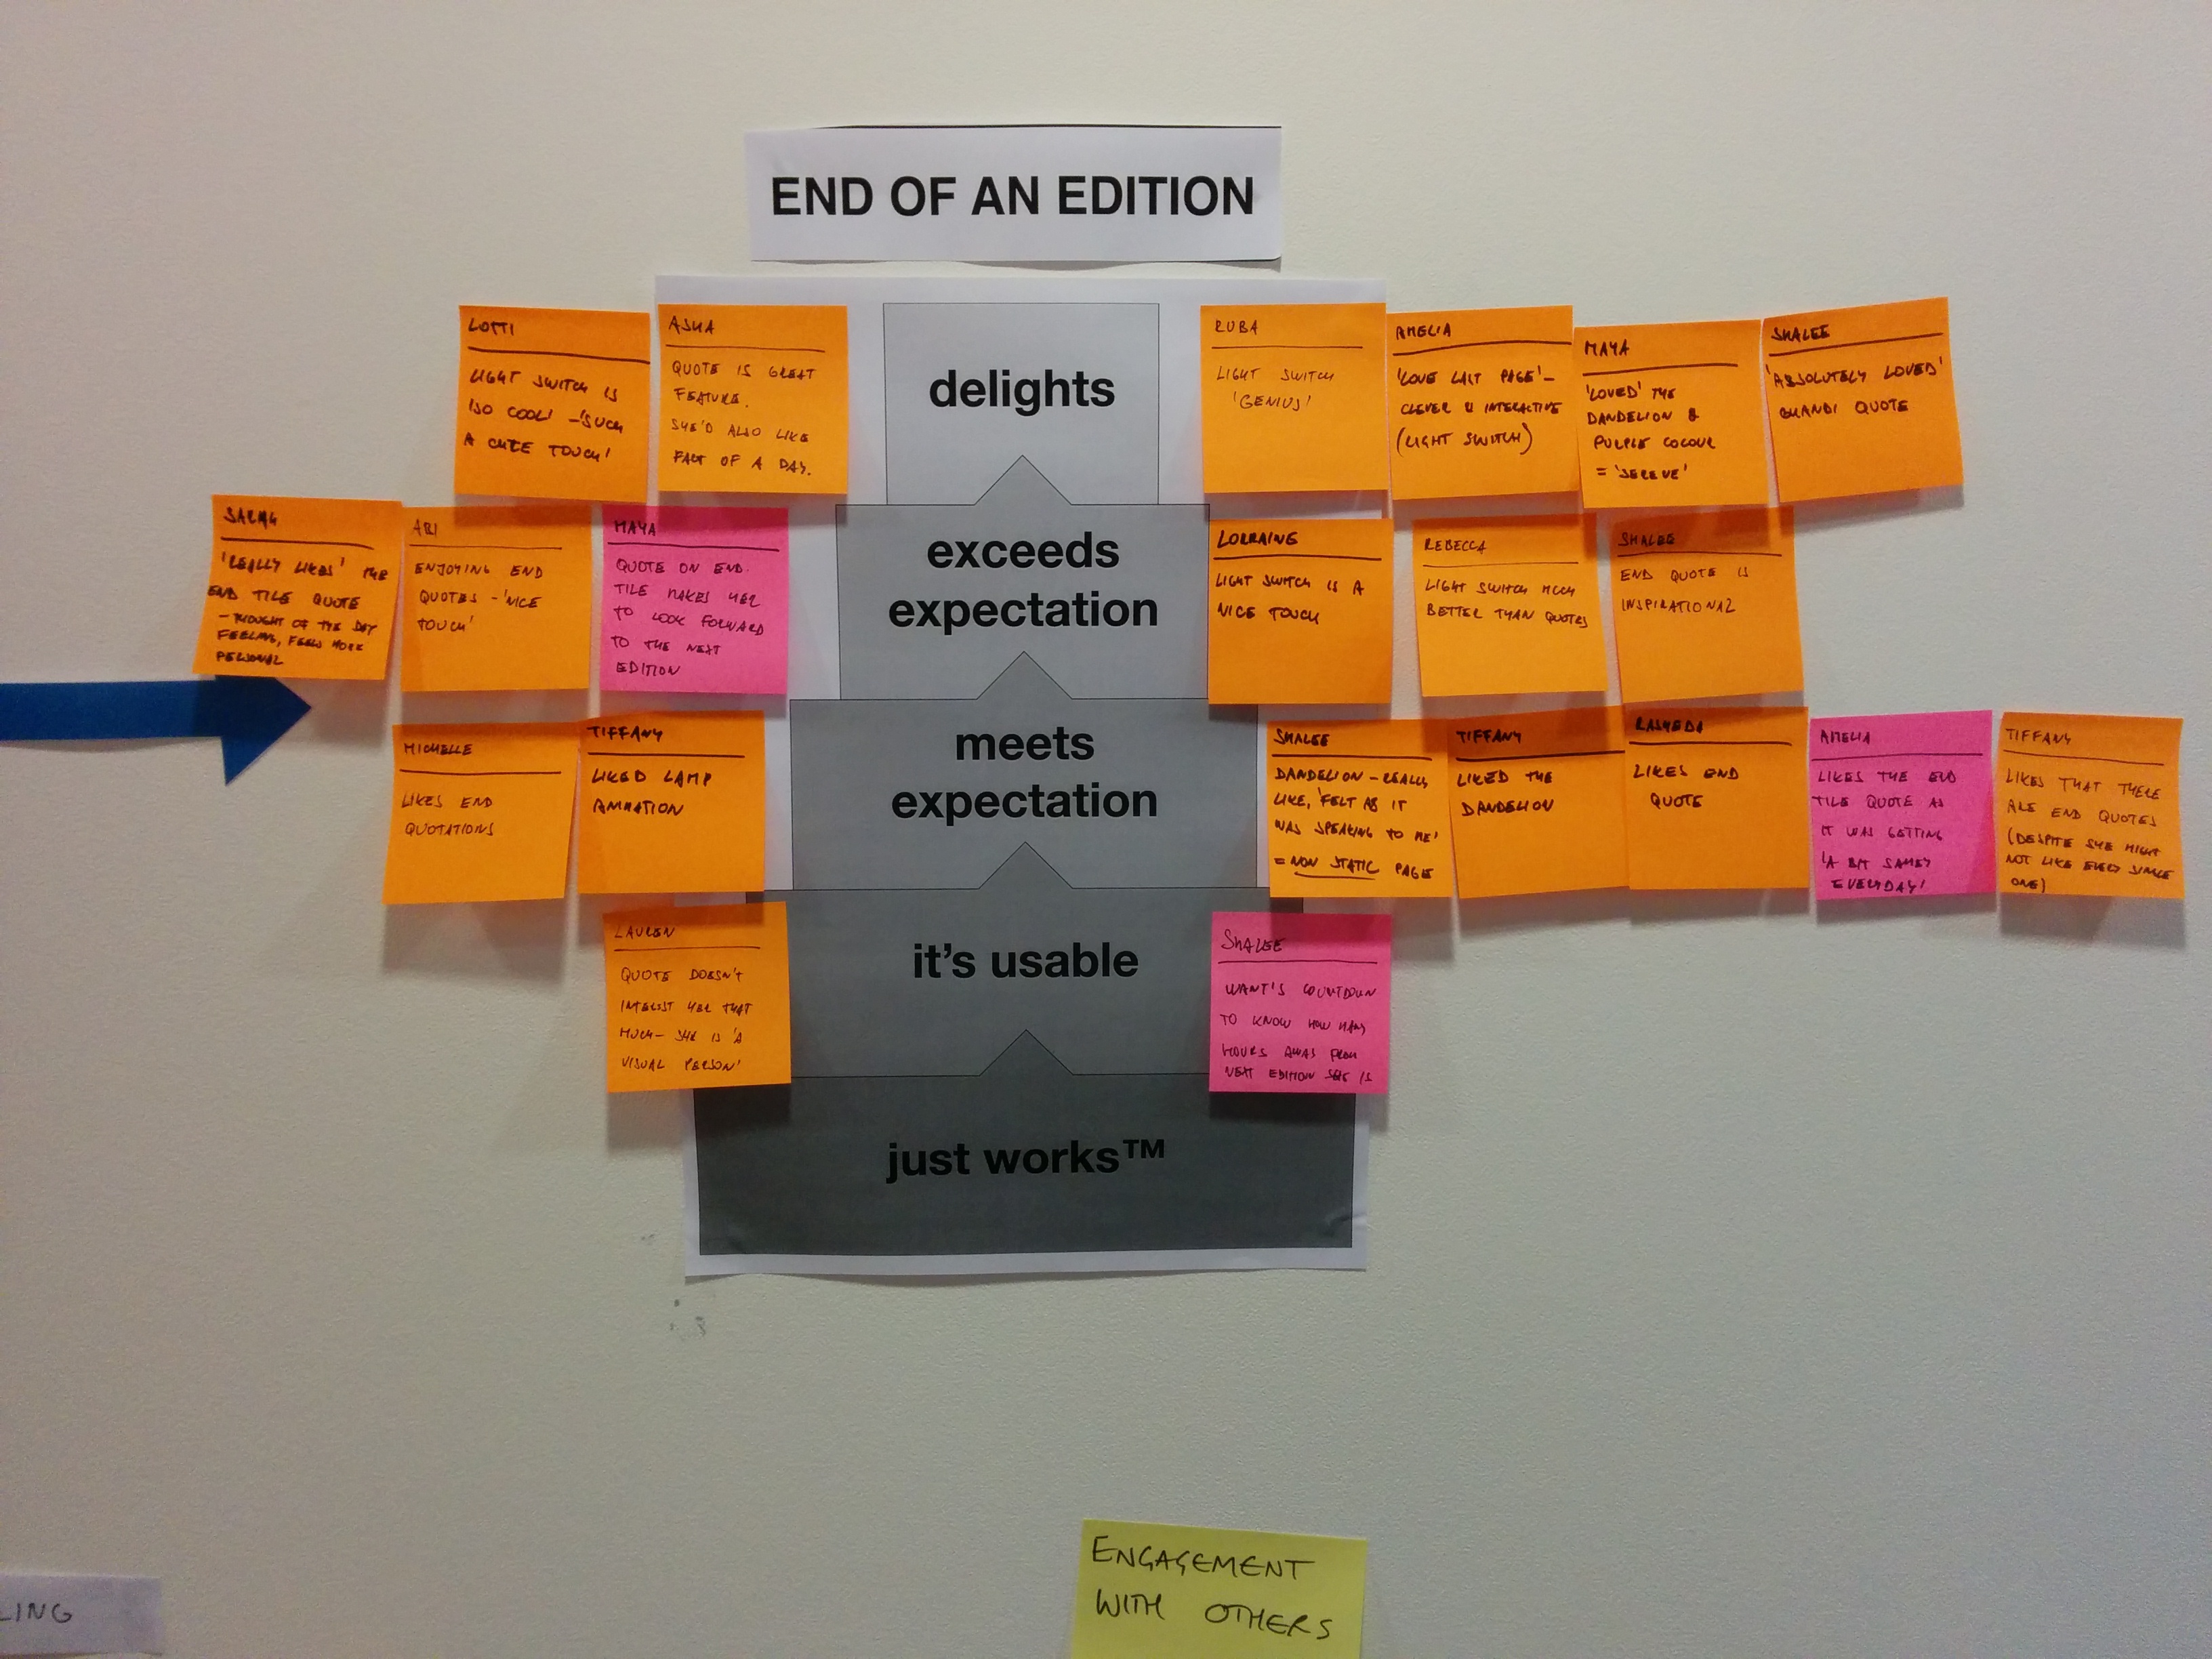 END OF AN EDITION
LOTTI
LIGHT SWITCH IS
'SO COOL' - 'SUCH
A CUTE TOUCH'
ASHA
QUOTE IS GREAT
FEATURE.
SHE'D ALSO LIKE
FACT OF A DAY.
delights
RUBA
LIGHT SWITCH
'GENIUS'
AMELIA
'LOVE LAST PAGE' -
CLEVER & INTERACTIVE
(LIGHT SWITCH)
MAYA
'LOVED' THE
DANDELION &
PURPLE COLOUR
= 'SERENE'
SHALEE
'ABSOLUTELY LOVED'
GHANDI QUOTE
'REALLY LIKES' THE
END TILE QUOTE
- THOUGHT OF THE DAY
FEELING, FEELS MORE
PERSONAL
ABI
ENJOYING END
QUOTES - 'NICE
TOUCH'
MAYA
QUOTE ON END
TILE MAKES HER
TO LOOK FORWARD
TO THE NEXT
EDITION
exceeds
expectation
LORRAINE
LIGHT SWITCH IS A
NICE TOUCH
REBECCA
LIGHT SWITCH MUCH
BETTER THAN QUOTES
SHALEE
END QUOTE IS
INSPIRATIONAL
MICHELLE
LIKES END
QUOTATIONS
TIFFANY
LIKED LAMP
ANIMATION
meets
expectation
SHALEE
DANDELION - REALLY
LIKE, 'FELT AS IT
WAS SPEAKING TO ME'
= NON STATIC PAGE
TIFFANY
LIKED THE
DANDELION
RASHEDA
LIKES END
QUOTE
AMELIA
LIKES THE END
TILE QUOTE AS
IT WAS GETTING
'A BIT SAMEY
EVERYDAY'
TIFFANY
LIKES THAT THERE
ARE END QUOTES
(DESPITE SHE MIGHT
NOT LIKE EVERY SINGLE
ONE)
LAUREN
QUOTE DOESN'T
INTEREST HER THAT
MUCH - SHE IS 'A
VISUAL PERSON'
it's usable
SHALEE
WANT'S COUNTDOWN
TO KNOW HOW MANY
HOURS AWAY FROM
NEXT EDITION SHE IS
just works™
ENGAGEMENT
WITH OTHERS
LING